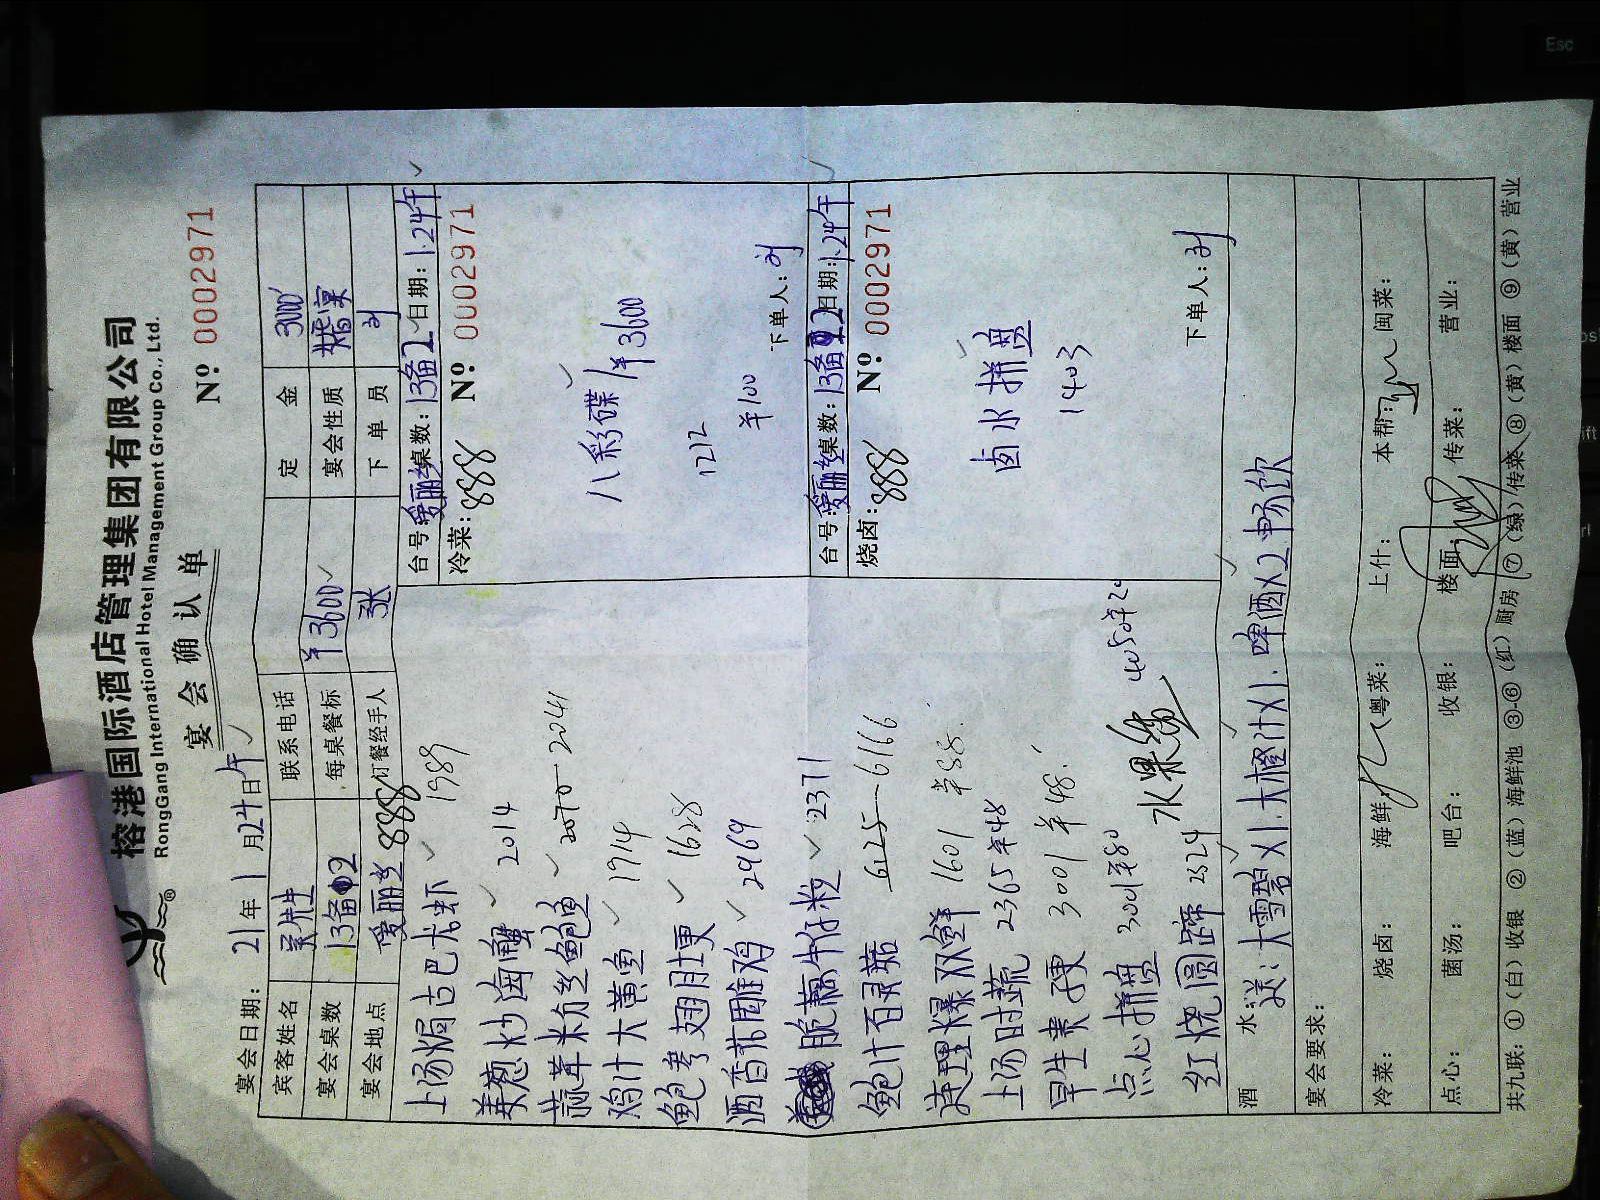 榕港国际酒店管理集团有限公司
RongGang International Hotel Management Group Co., Ltd.
宴会确认单
Nº 0002971
宴会日期: 21年1月24日午
宾客姓名 吴先生 联系电话 定金 3000
宴会桌数 13备2 每桌餐标 ¥3600 宴会性质 婚宴
宴会地点 爱丽丝 888 订餐经手人 张 下单员
上汤焗古巴龙虾 1989
姜葱炒海蟹 2014
蒜茸粉丝鲍鱼 2070-2041
鸡汁大黄鱼 1914
鲍参翅肚羹 1628
酒香花雕鸡 2969
脆藕牛仔粒 2371
鲍汁百灵菇 6125-6166
XO爆双鲜 1601 ¥88.
上汤时蔬 2365 ¥48
早生贵子羹 3001 ¥48.
点心拼盘 3001 ¥80
红烧圆蹄 2324
水果盘 4050 ¥20
台号: 爱丽丝 桌数: 13备2 日期: 1.24午
冷菜: 888 Nº 0002971
八彩碟 1 ¥3600
1212
¥100
下单人:
台号: 爱丽丝 桌数: 13备2 日期: 1.24午
烧卤: 888 Nº 0002971
卤水拼盘
1403
下单人:
酒水: 送: 大雪碧X1. 大橙汁X1. 啤酒X2 畅饮
宴会要求:
冷菜: 烧卤: 海鲜: 粤菜: 上什: 本帮: 闽菜:
点心: 菌汤: 吧台: 收银: 楼面: 传菜: 营业:
共九联: ①(白)收银 ②(蓝)海鲜池 ③-⑥(红)厨房 ⑦(绿)传菜 ⑧(黄)楼面 ⑨(黄)营业
Esc